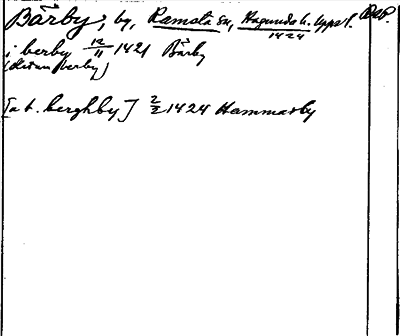 Bärby, by, Ramsta sn, Hagunda h. Uppl.
1424
i berby 12/11 1421 Bärby
berby)
[a b. berghby] 2/2 1424 Hammarby